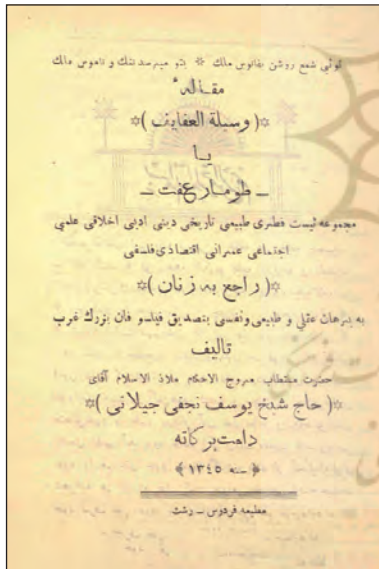 توئی شمع روشن بفانوس ملك * بتو میرسد ننگ و ناموس ملك
مقاله
*( وسیلة العفایف )*
یا
ـ طومار عفت ـ
مجموعه ئیست فطری طبیعی تاریخی دینی ادبی اخلاقی علمی
اجتماعی عمرانی اقتصادی فلسفی
*( راجع به زنان )*
به برهان عقلی و طبیعی و نفسی بتصدیق فیلسوفان بزرك غرب
تالیف
حضرت مستطاب مروج الاحکام ملاذ الاسلام آقای
*( حاج شیخ یوسف نجفی جیلانی )*
دامت برکاته
﴿ سنه ١٣٤٥ ﴾
مطبعه فردوس ـ رشت